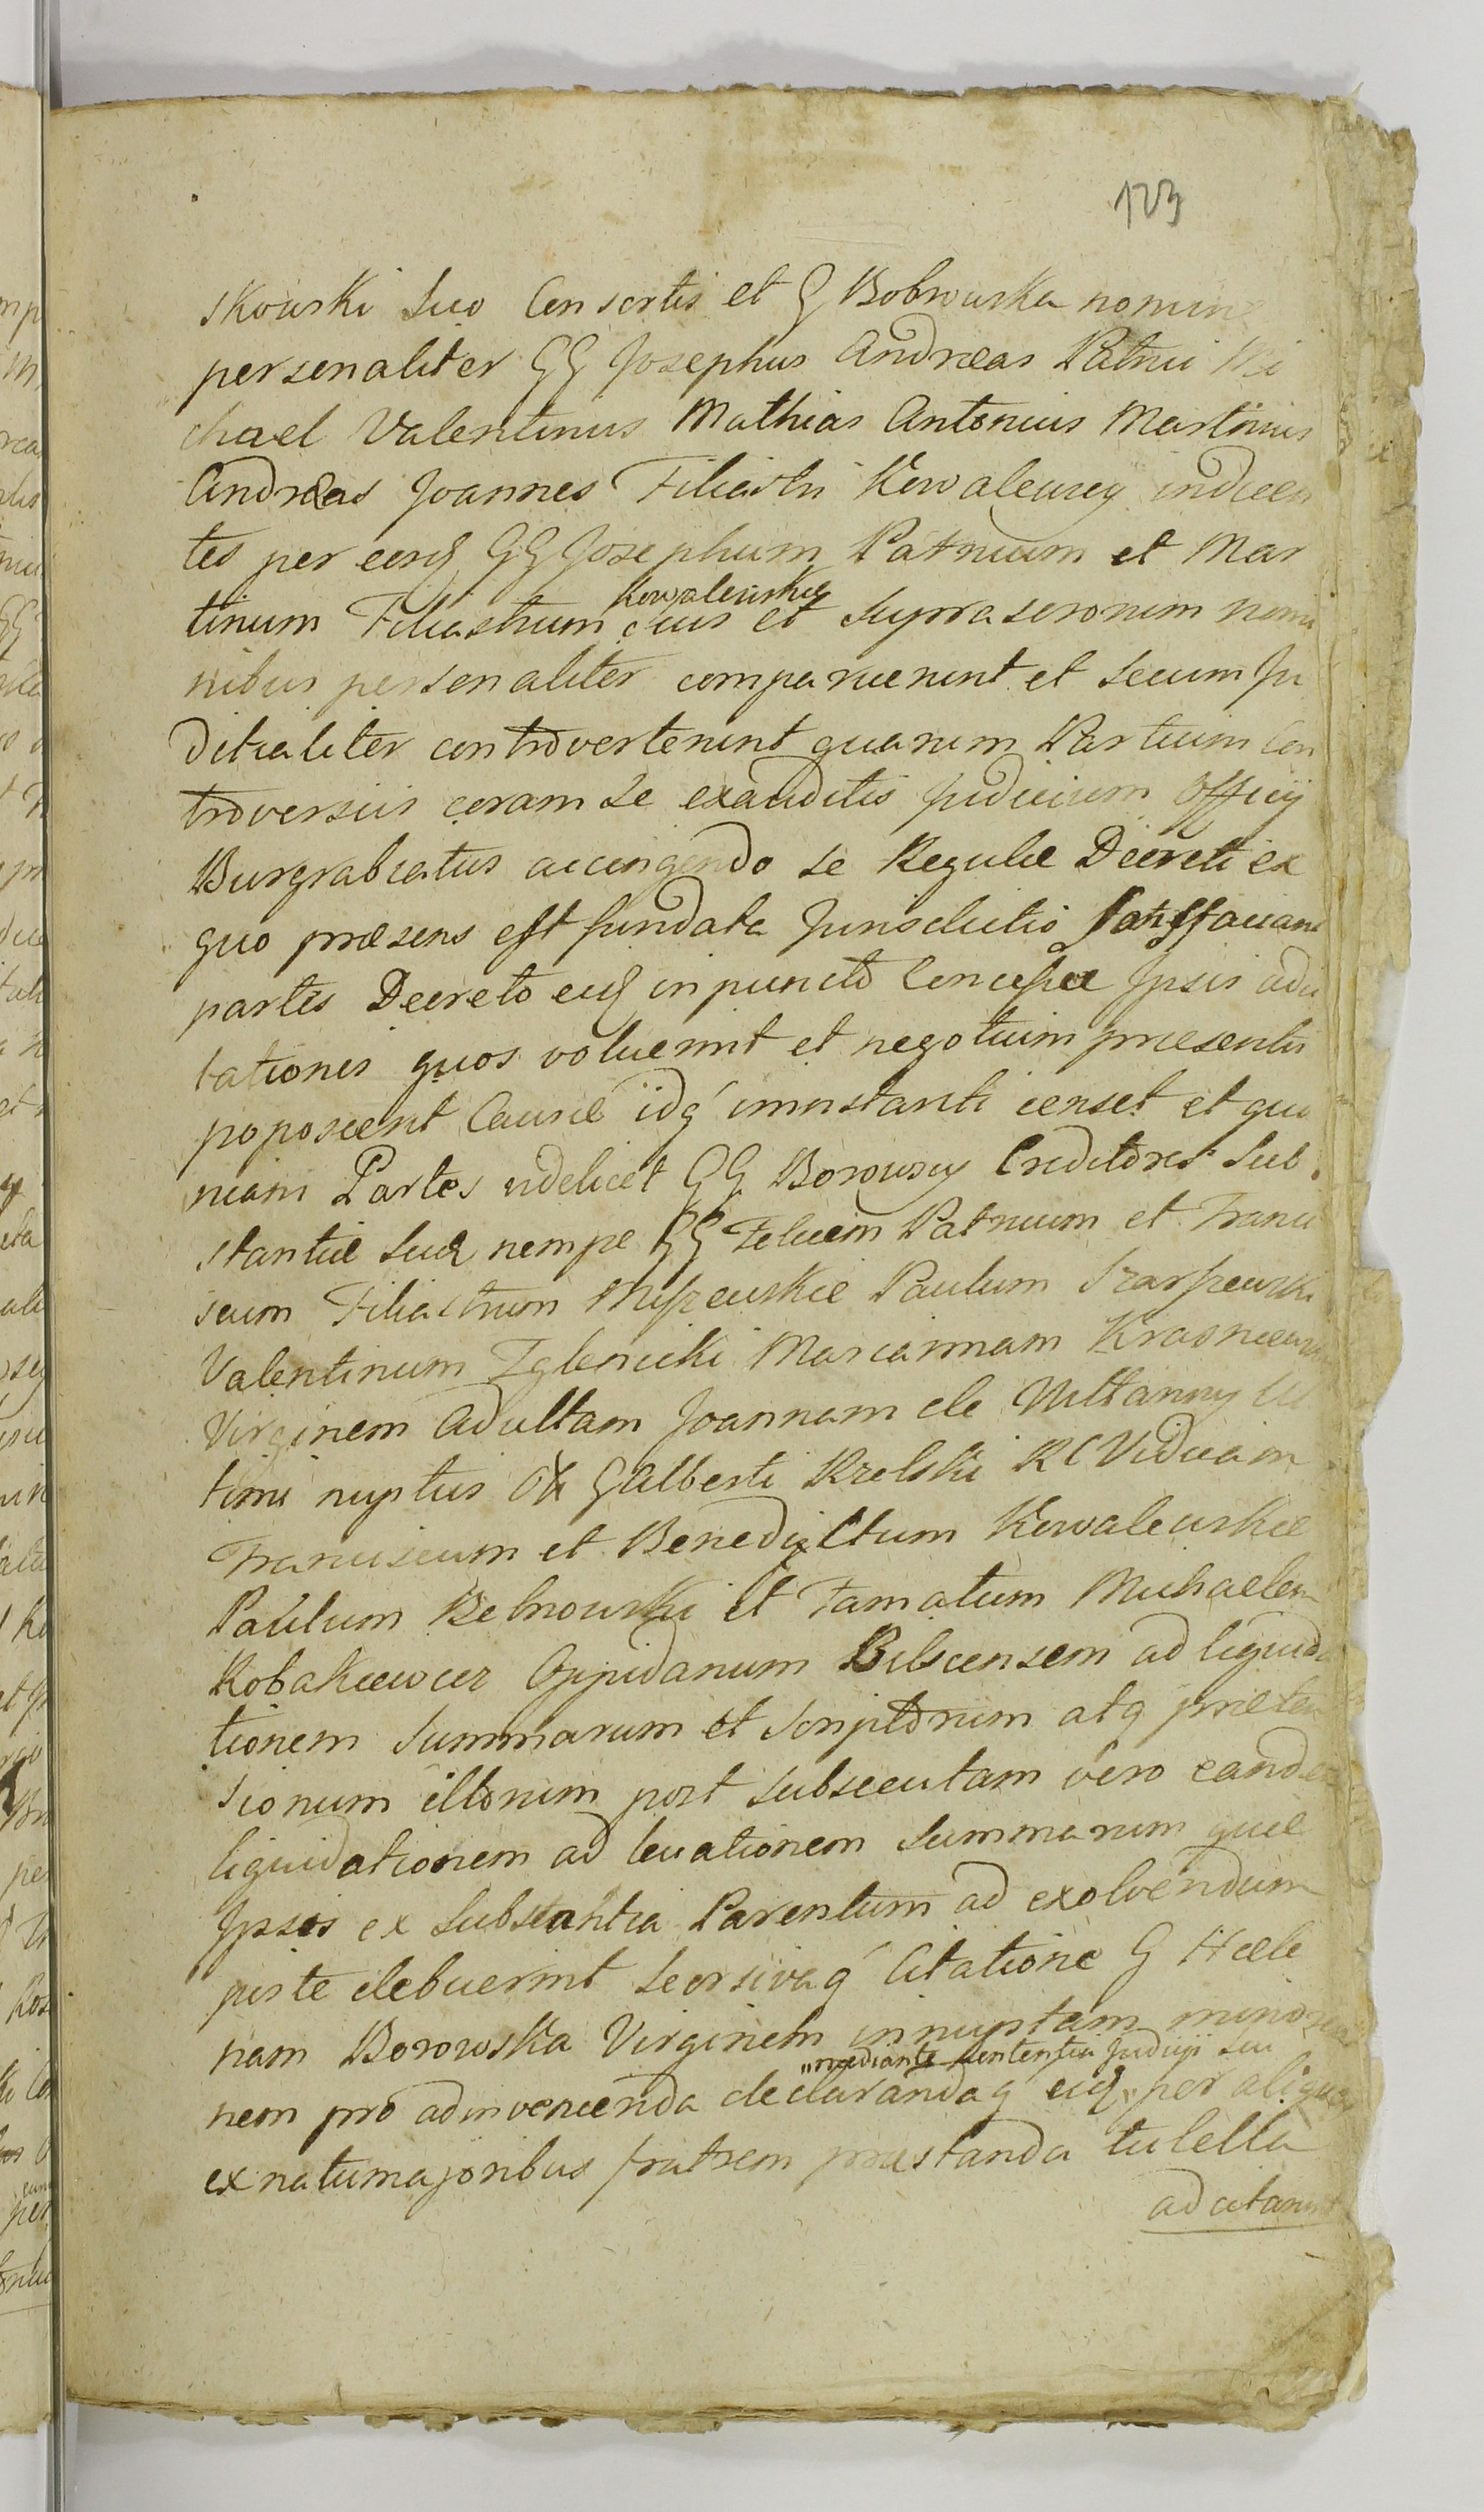 123
skowski Suo Consortis et G Bobrowska nomine
personaliter GG Josephus Andreas Patrui Mi
chael Valentinus Mathias Antonius Martinus
Andreas Joannes Filiastri Kowalewscy
tes per eosd GG Josephum Patruum et Mar
tinum Filiastrum Kowalewskie suis et supra nomi
nibus personaliter comparuerunt et secum Ju
ditialiter controverterunt quarum Partium Con
troversiis coram se exauditis Judicium Officij
Burgrabiatus accingendo se Regulæ Decreti ex
quo præsens est fundata Jurisdictio Satisfaciant
partes Decreto eid in puncto Concessæ Ipsis adci
tationis quos voluerint et negotium præsentis
poposcerit Causæ idq censet et quo
niam Partes videlicet GG Borowscy Creditores Sub
stantiæ suæ nempe GG Felicem Patruum et Franci
scum Filiastrum Paulum
Valentinum Zglenicki Mariannam
Virginem Adultam Joannam de Ul
timi nuptus Olim G Alberti Krelski RC Viduam
Franciscum et Benedictum Kowalewskie
Paulum et Famatum Michaelem
Robakiewicz Oppidanum Bilscensem ad liquida
tionem Summarum et Scriptorum atq præten
sionum illorum post subsecutam vero eandem
liquidationem ad levationem Summarum quæ
Ipsis ex Substantia Parentum ad exolvendum
juste debuerint Seorsivaq Citatione G Hele
nam Borowska Virginem innuptam mino
nem pro adinvenienda declarandaq eid „mediante sententia Judicij sui per aliquem
ex natu majoribus fratrem præstanda tutella
adcitarunt